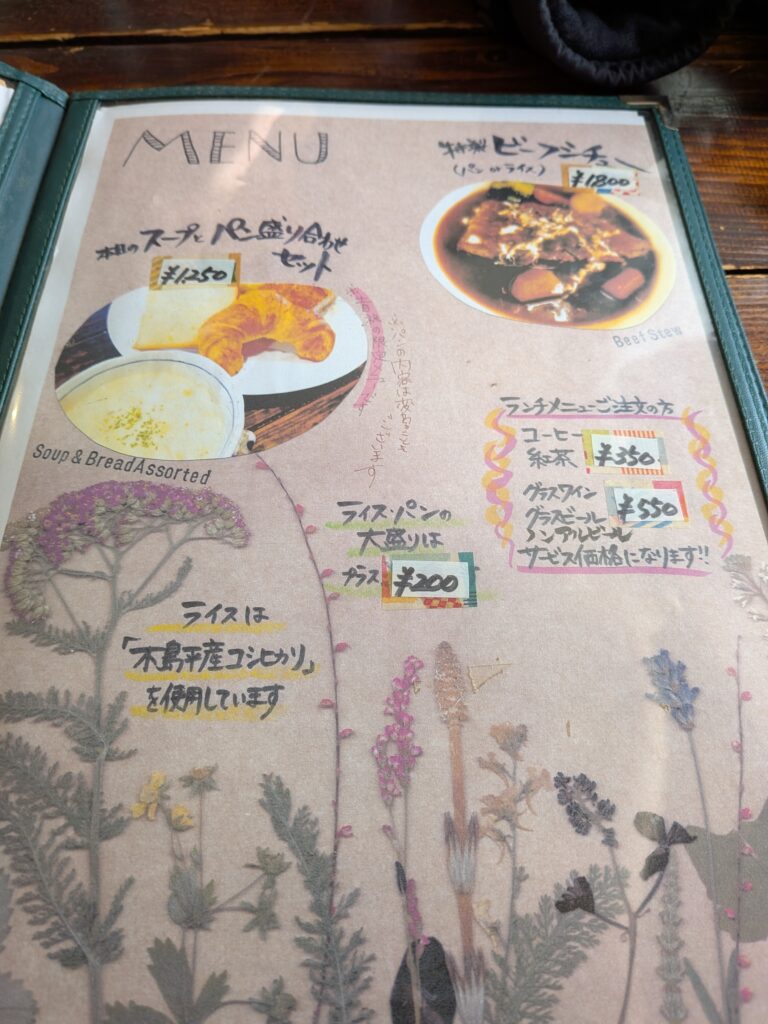 MENU
特製 ビーフシチュー
(パン or ライス)
¥1800
本日の スープと パン盛り合わせ
セット
¥1250
※パンの内容は変動でき
ございます
Beef Stew
Soup & Bread Assorted
ランチメニューご注文の方
コーヒー
紅茶
¥350
グラスワイン
グラスビール
ノンアルビール
¥550
サービス価格になります!!
ライス・パンの
大盛りは
プラス ¥200
ライスは
「木島平産コシヒカリ」
を使用しています